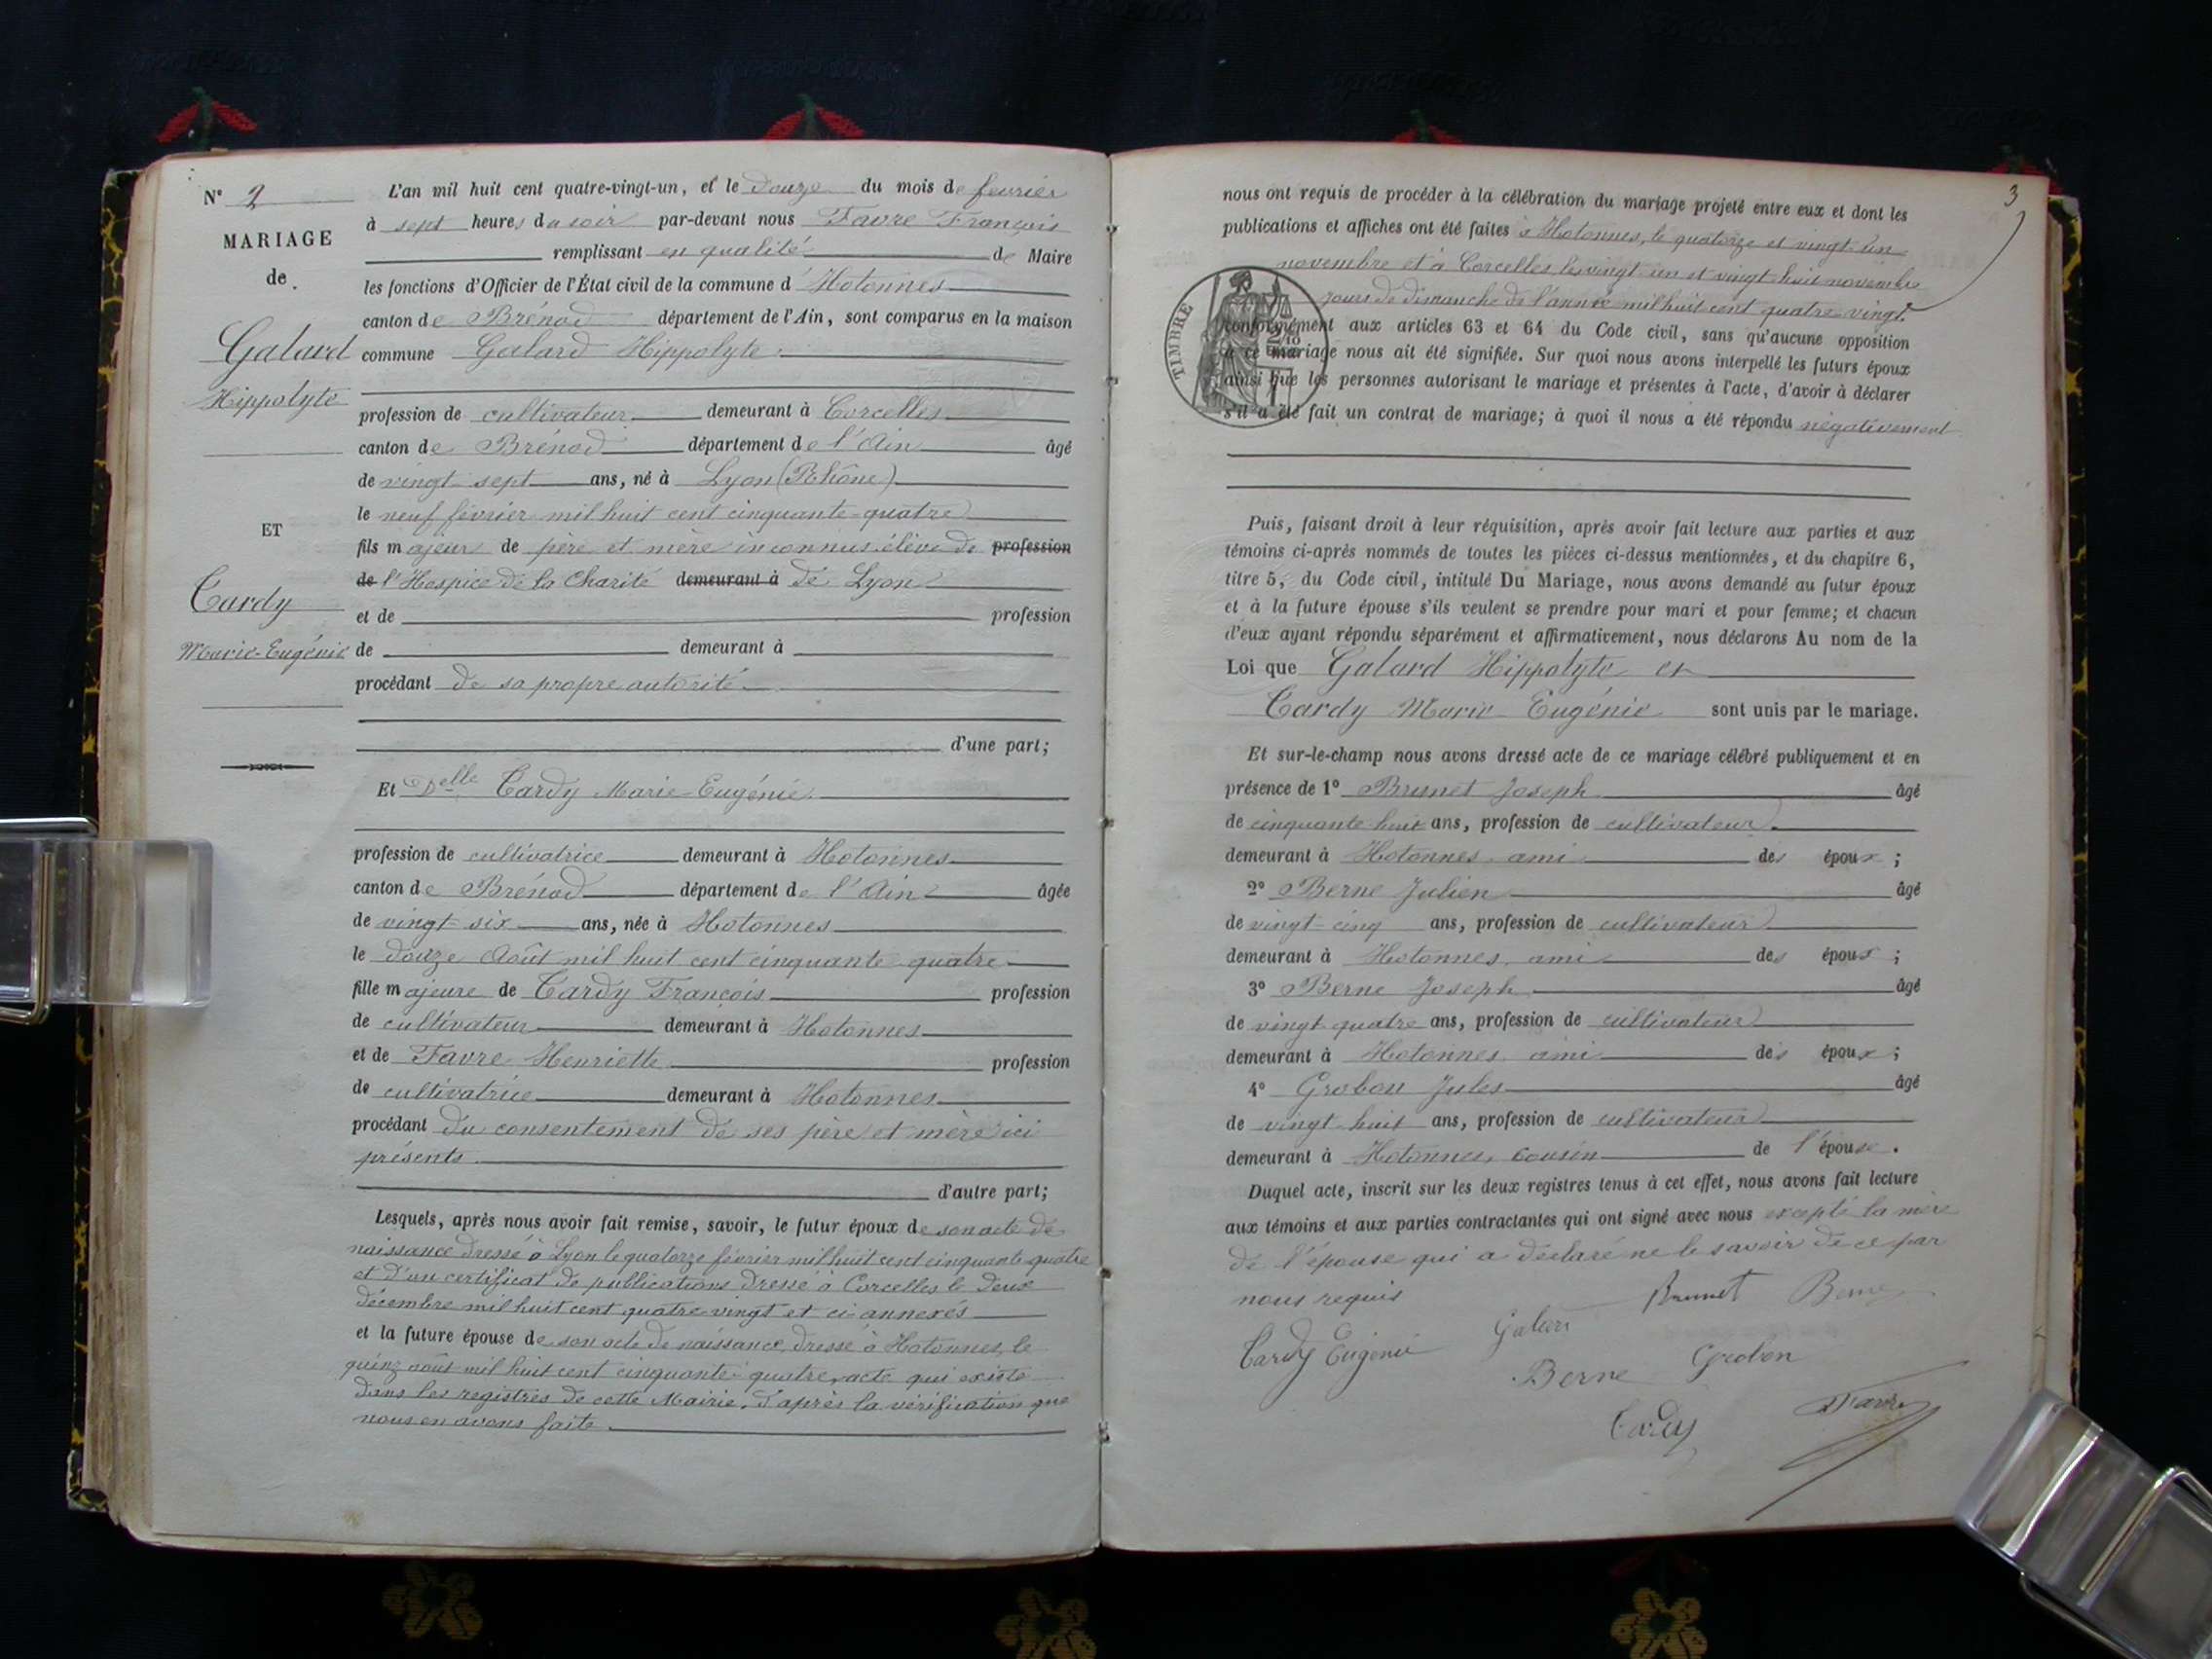 N° 2
MARIAGE
de
Galard
Hippolyte
ET
Cardy
Marie-Eugénie
L'an mil huit cent quatre-vingt-un, et le douze du mois de fevrier
à sept heures du soir par-devant nous Favre François
remplissant en qualité de Maire
les fonctions d'Officier de l'État civil de la commune d'Hotonnes
canton de Brénod département de l'Ain, sont comparus en la maison
commune Galard Hippolyte
profession de cultivateur demeurant à Corcelles
canton de Brénod département de l'Ain âgé
de vingt sept ans, né à Lyon (Rhône)
le neuf février mil huit cent cinquante-quatre
fils majeur de père et mère inconnus élève de profession
de l'Hospice de la Charité demeurant à de Lyon
et de profession
de demeurant à
procédant de sa propre autorité
d'une part;
Et Delle Cardy Marie-Eugénie
profession de cultivatrice demeurant à Hotonnes
canton de Brénod département de l'Ain âgée
de vingt-six ans, née à Hotonnes
le douze Août mil huit cent cinquante quatre
fille majeure de Cardy François profession
de cultivateur demeurant à Hotonnes
et de Favre Henriette profession
de cultivatrice demeurant à Hotonnes
procédant du consentement de ses père et mère ici
présents
d'autre part;
Lesquels, après nous avoir fait remise, savoir, le futur époux de son acte de
naissance dressé à Lyon le quatorze février mil huit cent cinquante quatre
et d'un certificat de publications dressé à Corcelles le deux
décembre mil huit cent quatre vingt et ci-annexés
et la future épouse de son acte de naissance, dressé à Hotonnes, le
quinz août mil huit cent cinquante-quatre, acte qui existe
dans les registres de cette Mairie, d'après la vérification que
nous en avons faite.
3
nous ont requis de procéder à la célébration du mariage projeté entre eux et dont les
publications et affiches ont été faites à Hotonnes, le quatorze et vingt-un
novembre et à Corcelles les vingt-un et vingt-huit novembre
jours de dimanche de l'année mil huit cent quatre-vingt.
TIMBRE
conformément aux articles 63 et 64 du Code civil, sans qu'aucune opposition
à ce mariage nous ait été signifiée. Sur quoi nous avons interpellé les futurs époux
ainsi que les personnes autorisant le mariage et présentes à l'acte, d'avoir à déclarer
s'il a été fait un contrat de mariage; à quoi il nous a été répondu négativement
Puis, faisant droit à leur réquisition, après avoir fait lecture aux parties et aux
témoins ci-après nommés de toutes les pièces ci-dessus mentionnées, et du chapitre 6,
titre 5, du Code civil, intitulé Du Mariage, nous avons demandé au futur époux
et à la future épouse s'ils veulent se prendre pour mari et pour femme; et chacun
d'eux ayant répondu séparément et affirmativement, nous déclarons Au nom de la
Loi que Galard Hippolyte et
Cardy Marie Eugénie sont unis par le mariage.
Et sur-le-champ nous avons dressé acte de ce mariage célébré publiquement et en
présence de 1° Brunet Joseph âgé
de cinquante-huit ans, profession de cultivateur
demeurant à Hotonnes, ami des époux ;
2° Berne Julien âgé
de vingt-cinq ans, profession de cultivateur
demeurant à Hotonnes, ami des époux ;
3° Berne Joseph âgé
de vingt quatre ans, profession de cultivateur
demeurant à Hotonnes ami des époux ;
4° Grobon Jules âgé
de vingt-huit ans, profession de cultivateur
demeurant à Hotonnes, cousin de l'épouse.
Duquel acte, inscrit sur les deux registres tenus à cet effet, nous avons fait lecture
aux témoins et aux parties contractantes qui ont signé avec nous excepté la mère
de l'épouse qui a déclaré ne le savoir de ce par
nous requis
Brunet Berne
Cardy Eugénie Galard
Berne Grobon
Cardy Favre